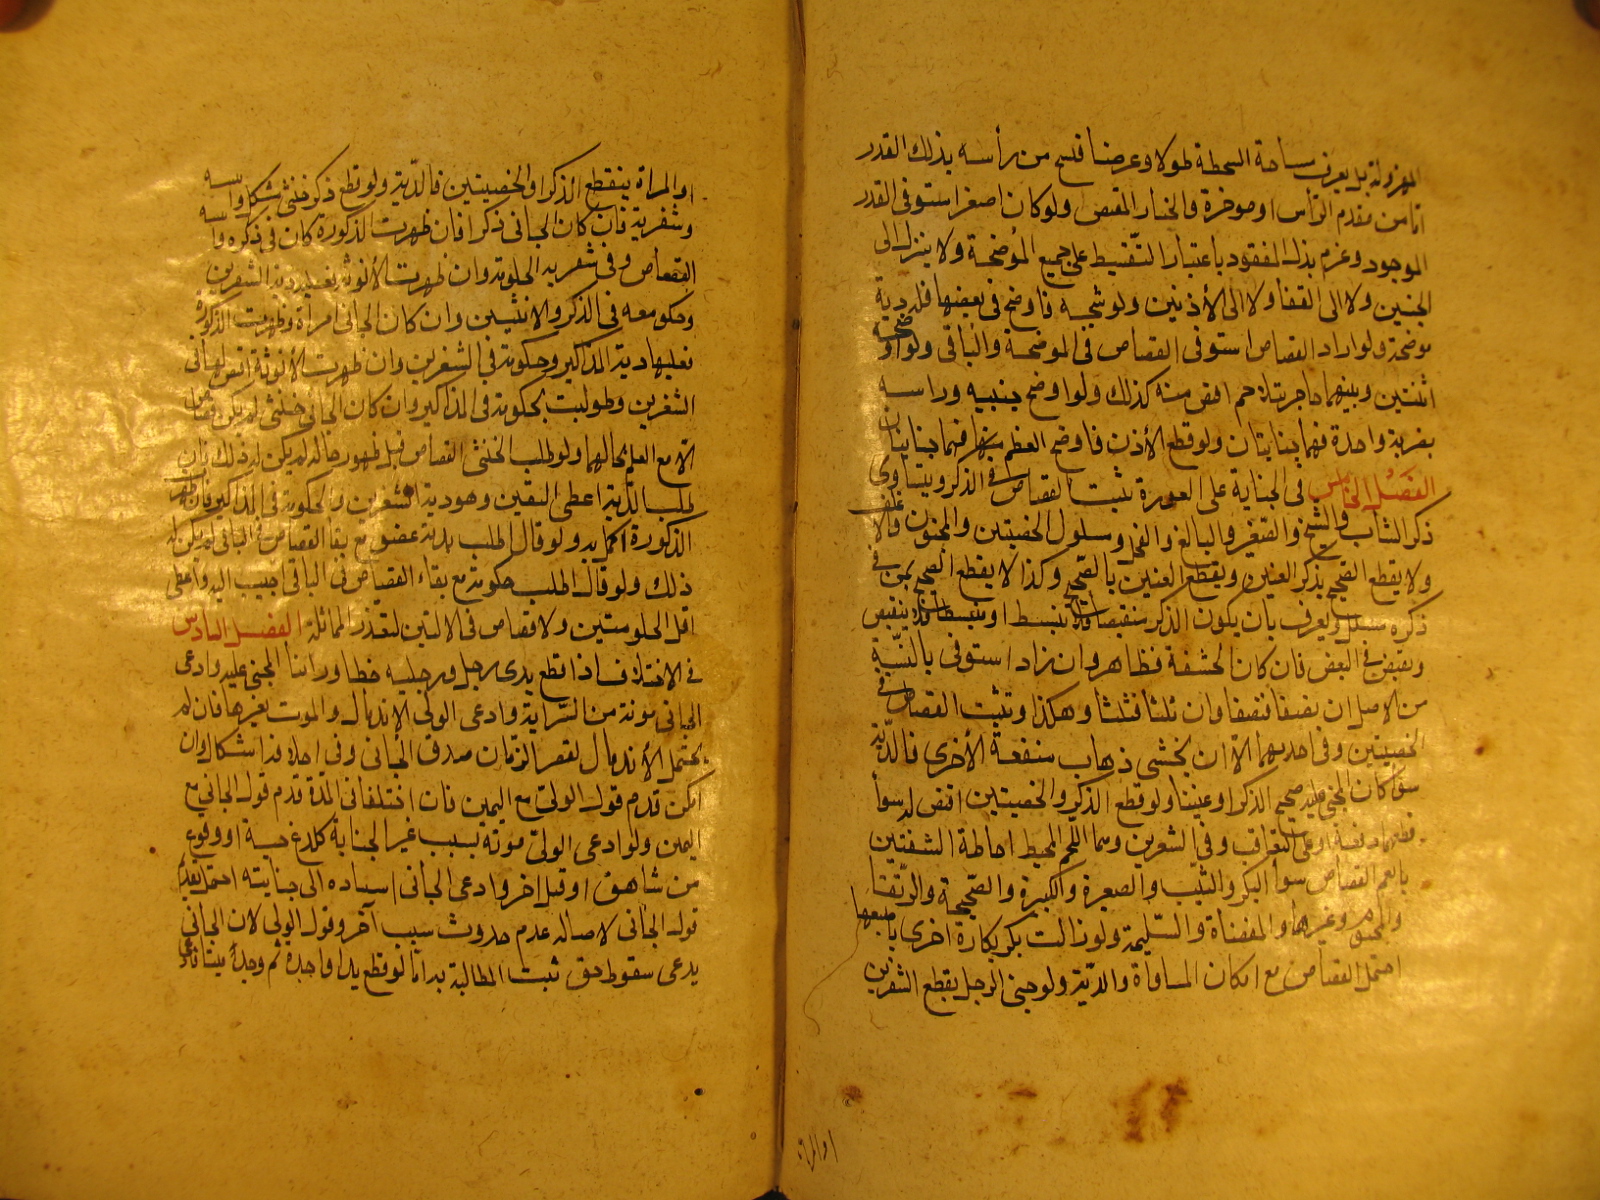 المهزولة بل يعرف مساحة الشجة طولا وعرضا فيشج من رأسه بذلك القدر
اما من مقدم الرأس او موخرة والخيار للمقتص ولو كان اصغر استوفى القدر
الموجود وغرم بذلك المفقود باعتبار التقسيط على جميع الموضحة ولا ينزل الى
الجبين ولا الى القفا ولا الى الأذنين ولو شجه فاوضح في بعضها فله دية
موضحة ولو اراد القصاص استوفى القصاص في الموضحة والباقي ولو اوضحه
اثنتين وبينهما حاجز
كذلك ولو اوضح جنبيه وراسه
بضربة واحدة فهما جنايتان ولو قطع الأذن فاوضح العظم منها فهما جنايتان
الفصل الخامس في الجناية على العورة يثبت القصاص في الذكر ويتساوى
ذكر الشاب والشيخ والصغير والبالغ والفحل ومسلول الخصيتين والمختون والاغلف
ولا يقطع الصحيح بذكر العنين ويقطع العنين بالصحيح وكذا لا يقطع الصحيح بمن في
ذكره شلل ويعرف بان يكون الذكر منقبضا فلا ينبسط او منبسطا فلا ينقبض
ويقتص في البعض فان كان الحشفة فظاهر وان زاد استوفى بالنسبة
من الاصل ان نصفا فنصفا وان ثلثا فثلثا وهكذا ويثبت القصاص في
الخصيتين وفي احديهما الا ان يخشى ذهاب منفعة الأخرى فالدية
سوا كان المجني عليه صحيح الذكر او عنينا ولو قطع الذكر والخصيتين اقتص له سوا
قطعهما دفعة او على التعاقب وفي الشفرين وهما اللحم المحيط احاطة الشفتين
بالفم القصاص سوا البكر والثيب والصغيرة والكبيرة والصحيحة والرتقا
وغيرها والمفضاة والسليمة ولو ازالت بكر بكارة اخرى باصبعها
احتمل القصاص مع امكان المساواة والدية ولو جنى الرجل بقطع الشفرين
او المراة
او المراة بقطع الذكر او الخصيتين فالدية ولو قطع ذكر خنثى مشكل وانثييه
وشفريه فان كان الجاني ذكرا فان ظهرت الذكورة كان في ذكره وانثييه
القصاص وفي شفريه الحكومة وان ظهرت الأنوثة فعليه دية الشفرين
وحكومه في الذكر والانثيين وان كان الجاني امرأة وظهرت الذكورة
فعليها دية المذاكير وحكومة في الشفرين وان ظهرت الأنوثة اقتص لها في
الشفرين وطولبت بحكومة في المذاكير وان كان الجاني خنثى لم يكن قصاص
الا مع العلم بحالهما ولو طلب الخنثى القصاص قبل ظهور حاله لم يكن له ذلك فان
طلب الدية اعطى اليقين وهو دية الشفرين والحكومة في المذاكير فان ظهر
الذكورة اكمل له ولو قال اطلب دية عضو مع بقا القصاص في الباقي لم يكن له
ذلك ولو قال اطلب حكومة مع بقاء القصاص في الباقي اجيب اليه واعطى
اقل الحكومتين ولا قصاص في الاليتين لتعذر المماثلة الفصل السادس
في الاختلاف اذا قطع يدى رجل ورجليه خطا وراينا المجني عليه وادعى
الجاني موته من السراية وادعى الولى الإندمال والموت بغيرها فان لم
يحتمل الأندمال لقصر الزمان صدق الجاني وفي احلافه اشكال وان
امكن قدم قول الولي مع اليمين فان اختلفا في المدة قدم قول الجاني مع
اليمين ولو ادعى الولي موته بسبب غير الجناية كلدغ حية او وقوع
من شاهق او قتل اخر وادعى الجاني استناده الى جنايته احتمل تقديم
قول الجاني لاصالة عدم حدوث سبب آخر وقول الولى لان الجاني
يدعى سقوط حق ثبت المطالبة به اما لو قطع يدا واحدة ثم وجد ميتا